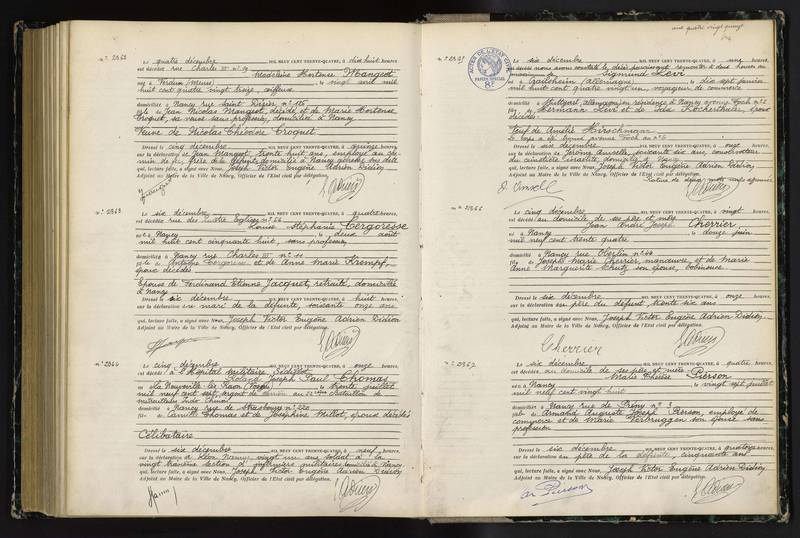 N° 2362
Le quatre décembre MIL NEUF CENT TRENTE-QUATRE, à dix huit heures,
est décédée rue Charles III n°
Madeleine Hortense Mangeot
né e à Verdun (Meuse) le vingt avril mil
huit cent quatre vingt treize, coiffeuse
domicilié e à Nancy rue Saint Dizier n° 125
fille de Jean Nicolas Mangeot, décédé, et de Marie Hortense
Croquet, sa veuve sans profession, domiciliée à Nancy
Veuve de Nicolas Théodore Croquet
Dressé le cinq décembre MIL NEUF CENT TRENTE-QUATRE, à quinze heures,
sur la déclaration de Jean Mangeot, trente huit ans, employé au che-
min de fer, frère de la défunte, domicilié à Nancy
qui, lecture faite, a signé avec Nous, Joseph Victor Eugène Adrien Didion
Adjoint au Maire de la Ville de Nancy, Officier de l'Etat civil par délégation.
N° 2363
Le six décembre MIL NEUF CENT TRENTE-QUATRE, à quatre heures,
est décédée rue des Quatre Eglises n° 56
Louise Stéphanie Cergoresse
né e à Nancy le deux août
mil huit cent cinquante huit, sans profession
domicilié e à Nancy rue Charles III n°
fille de Antoine Cergoresse et de Anne Marie Krempf,
époux décédés
Epouse de Ferdinand Etienne Jacquot, retraité, domicilié
à Nancy
Dressé le six décembre MIL NEUF CENT TRENTE-QUATRE, à huit heures,
sur la déclaration du mari de la défunte, soixante onze ans
qui, lecture faite, a signé avec Nous, Joseph Victor Eugène Adrien Didion
Adjoint au Maire de la Ville de Nancy, Officier de l'Etat civil par délégation.
N° 2364
Le cinq décembre MIL NEUF CENT TRENTE-QUATRE, à onze heures,
est décédé à l'Hôpital militaire Sédillot
Roland Joseph Paul Thomas
né à La Neuveville les Raon (Vosges) le trente juillet
mil neuf cent sept, sergent de
mitrailleurs Indo Chinois
domicilié à Nancy rue de Strasbourg n° 220
fils de Camille Thomas et de Joséphine Millot, époux décédés
Célibataire
Dressé le six décembre MIL NEUF CENT TRENTE-QUATRE, à neuf heures,
sur la déclaration de Léon Hanny, vingt un ans, soldat à la
vingt troisième section d'infirmiers militaires, domicilié à Nancy
qui, lecture faite, a signé avec Nous, Joseph Victor Eugène Adrien Didion
Adjoint au Maire de la Ville de Nancy, Officier de l'Etat civil par délégation.
Hanny
quatre vingt quinze
N° 2365
ACTES DE L'ETAT CIVIL
PAPIER SPECIAL
Le six décembre MIL NEUF CENT TRENTE-QUATRE, à onze heures,
Sigmund Levi
né à Gailsheim (Allemagne) le dix sept janvier
mil huit cent quatre vingt un, voyageur de commerce
domicilié à Stuttgart (Allemagne) en résidence à Nancy avenue Foch n° 5
fils de Hermann Levi et de Ida Kocherthaler, époux
décédés
Veuf de Amélie Hirschmann
Dressé le six décembre MIL NEUF CENT TRENTE-QUATRE, à onze heures,
sur la déclaration de Jérôme Amselle, soixante six ans, conservateur
du cimetière israélite, domicilié à Nancy
qui, lecture faite, a signé avec Nous, Joseph Victor Eugène Adrien Didion
Adjoint au Maire de la Ville de Nancy, Officier de l'Etat civil par délégation.
N° 2366
Le cinq décembre MIL NEUF CENT TRENTE-QUATRE, à vingt heures,
est décédé au domicile de ses père et mère
Jean André Joseph Cherrier
né à Nancy le douze juin
mil neuf cent trente quatre
domicilié à Nancy rue Oberlin n° 44
fils de Joseph Marie Cherrier, manœuvre, et de Marie
Anne Marguerite Schutz son épouse, bobineuse
Dressé le six décembre MIL NEUF CENT TRENTE-QUATRE, à onze heures,
sur la déclaration du père du défunt, trente six ans
qui, lecture faite, a signé avec Nous, Joseph Victor Eugène Adrien Didion
Adjoint au Maire de la Ville de Nancy, Officier de l'Etat civil par délégation.
Cherrier
N° 2367
Le six décembre MIL NEUF CENT TRENTE-QUATRE, à quatre heures,
est décédée au domicile de ses père et mère
Marie Thérèse Pierson
né e à Nancy le vingt sept juillet
mil neuf cent vingt huit
domicilié e à Nancy rue de Prény n° 3
fille de Armand Auguste Joseph Pierson, employé de
commerce et de Marie Verbruggen son épouse sans
profession
Dressé le six décembre MIL NEUF CENT TRENTE-QUATRE, à quatorze heures,
sur la déclaration du père de la défunte, cinquante ans
qui, lecture faite, a signé avec Nous, Joseph Victor Eugène Adrien Didion
Adjoint au Maire de la Ville de Nancy, Officier de l'Etat civil par délégation.
Pierson